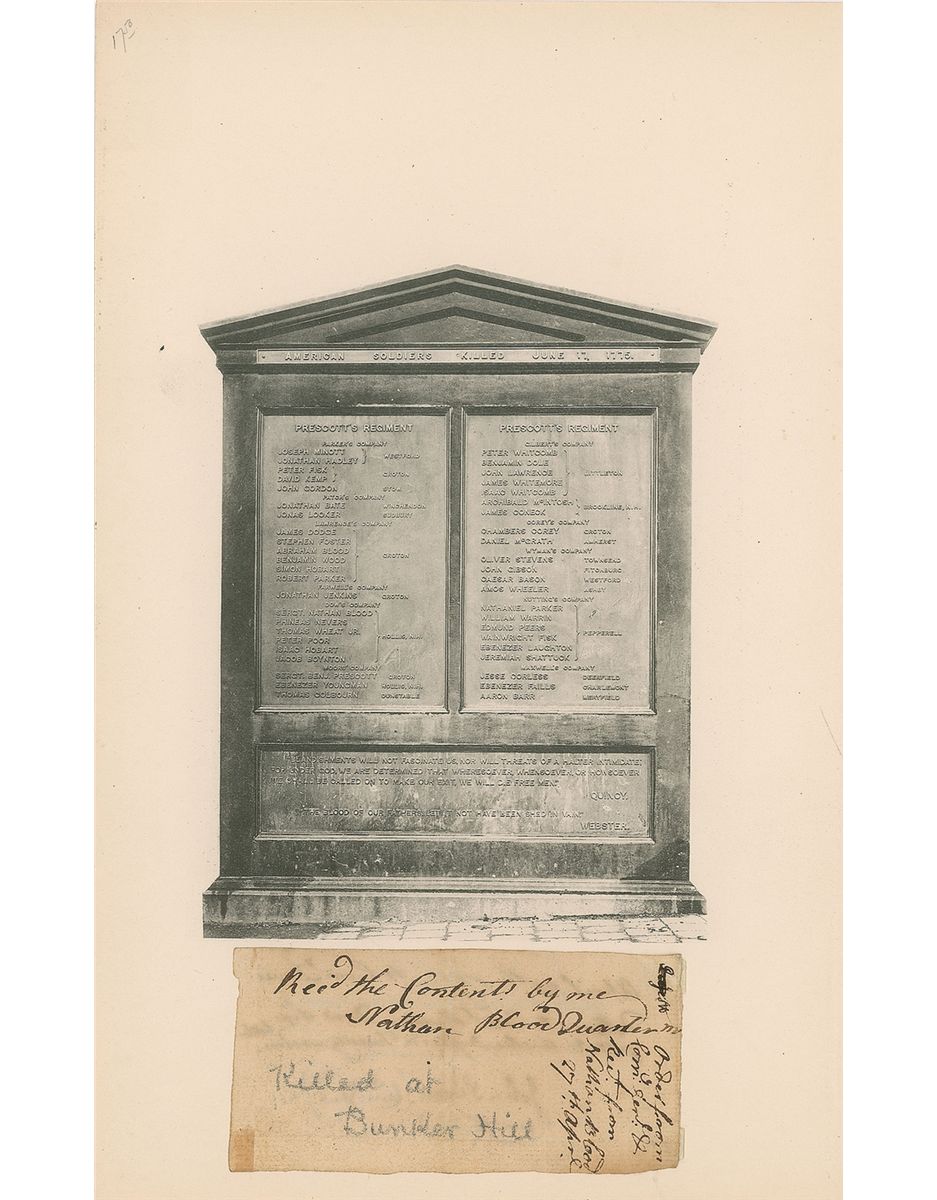 AMERICAN SOLDIERS KILLED JUNE 17, 1775.
PRESCOTT'S REGIMENT
PARKER'S COMPANY
JOSEPH MINOTT
JONATHAN HADLEY
WESTFORD
PETER FISK
DAVID KEMP
GROTON
JOHN GORDON STOW
PATCH'S COMPANY
JONATHAN BATE WINCHENDON
JONAS LOOKER SUDBURY
LAWRENCE'S COMPANY
JAMES DODGE
STEPHEN FOSTER
ABRAHAM BLOOD
GROTON
BENJAMIN WOOD
SIMON HOBART
ROBERT PARKER
FARWELL'S COMPANY
JONATHAN JENKINS GROTON
DOW'S COMPANY
SERGT. NATHAN BLOOD
PHINEAS NEVERS
THOMAS WHEAT JR.
HOLLIS, N.H.
PETER POOR
ISAAC HOBART
JACOB BOYNTON
MOORS' COMPANY
SERGT. BENJ. PRESCOTT GROTON
EBENEZER YOUNGMAN HOLLIS, N.H.
THOMAS COLBOURN DUNSTABLE
PRESCOTT'S REGIMENT
GILBERT'S COMPANY
PETER WHITCOMB
BENJAMIN DOLE
JOHN LAWRENCE LITTLETON
JAMES WHITEMORE
ISAAC WHITCOMB
ARCHIBALD McINTOSH
BROOKLINE, N.H.
JAMES CONECK
COREY'S COMPANY
CHAMBERS COREY GROTON
DANIEL McGRATH AMHERST
WYMAN'S COMPANY
OLIVER STEVENS TOWNSEND
JOHN GIBSON FITCHBURG
CAESAR BASON WESTFORD
AMOS WHEELER ASHBY
NUTTING'S COMPANY
NATHANIEL PARKER
WILLIAM WARRIN
EDMUND PEERS
PEPPERELL
WAINWRIGHT FISK
EBENEZER LAUGHTON
JEREMIAH SHATTUCK
MAXWELL'S COMPANY
JESSE CORLESS DEERFIELD
EBENEZER FAILLS CHARLEMONT
AARON BARR MERYFIELD
BLANDISHMENTS WILL NOT FASCINATE US, NOR WILL THREATS OF A HALTER INTIMIDATE;
FOR UNDER GOD, WE ARE DETERMINED THAT WHERESOEVER, WHENSOEVER, OR HOWSOEVER
WE SHALL BE CALLED ON TO MAKE OUR EXIT, WE WILL DIE FREE MEN."
QUINCY.
"THE BLOOD OF OUR FATHERS, LET IT NOT HAVE BEEN SHED IN VAIN."
WEBSTER.
Reid the Contents by me
Nathan Blood Quarter m
Killed at
Bunker Hill
Order from
Com. Genl. &
Rect. from
Nathan Blood
27th April